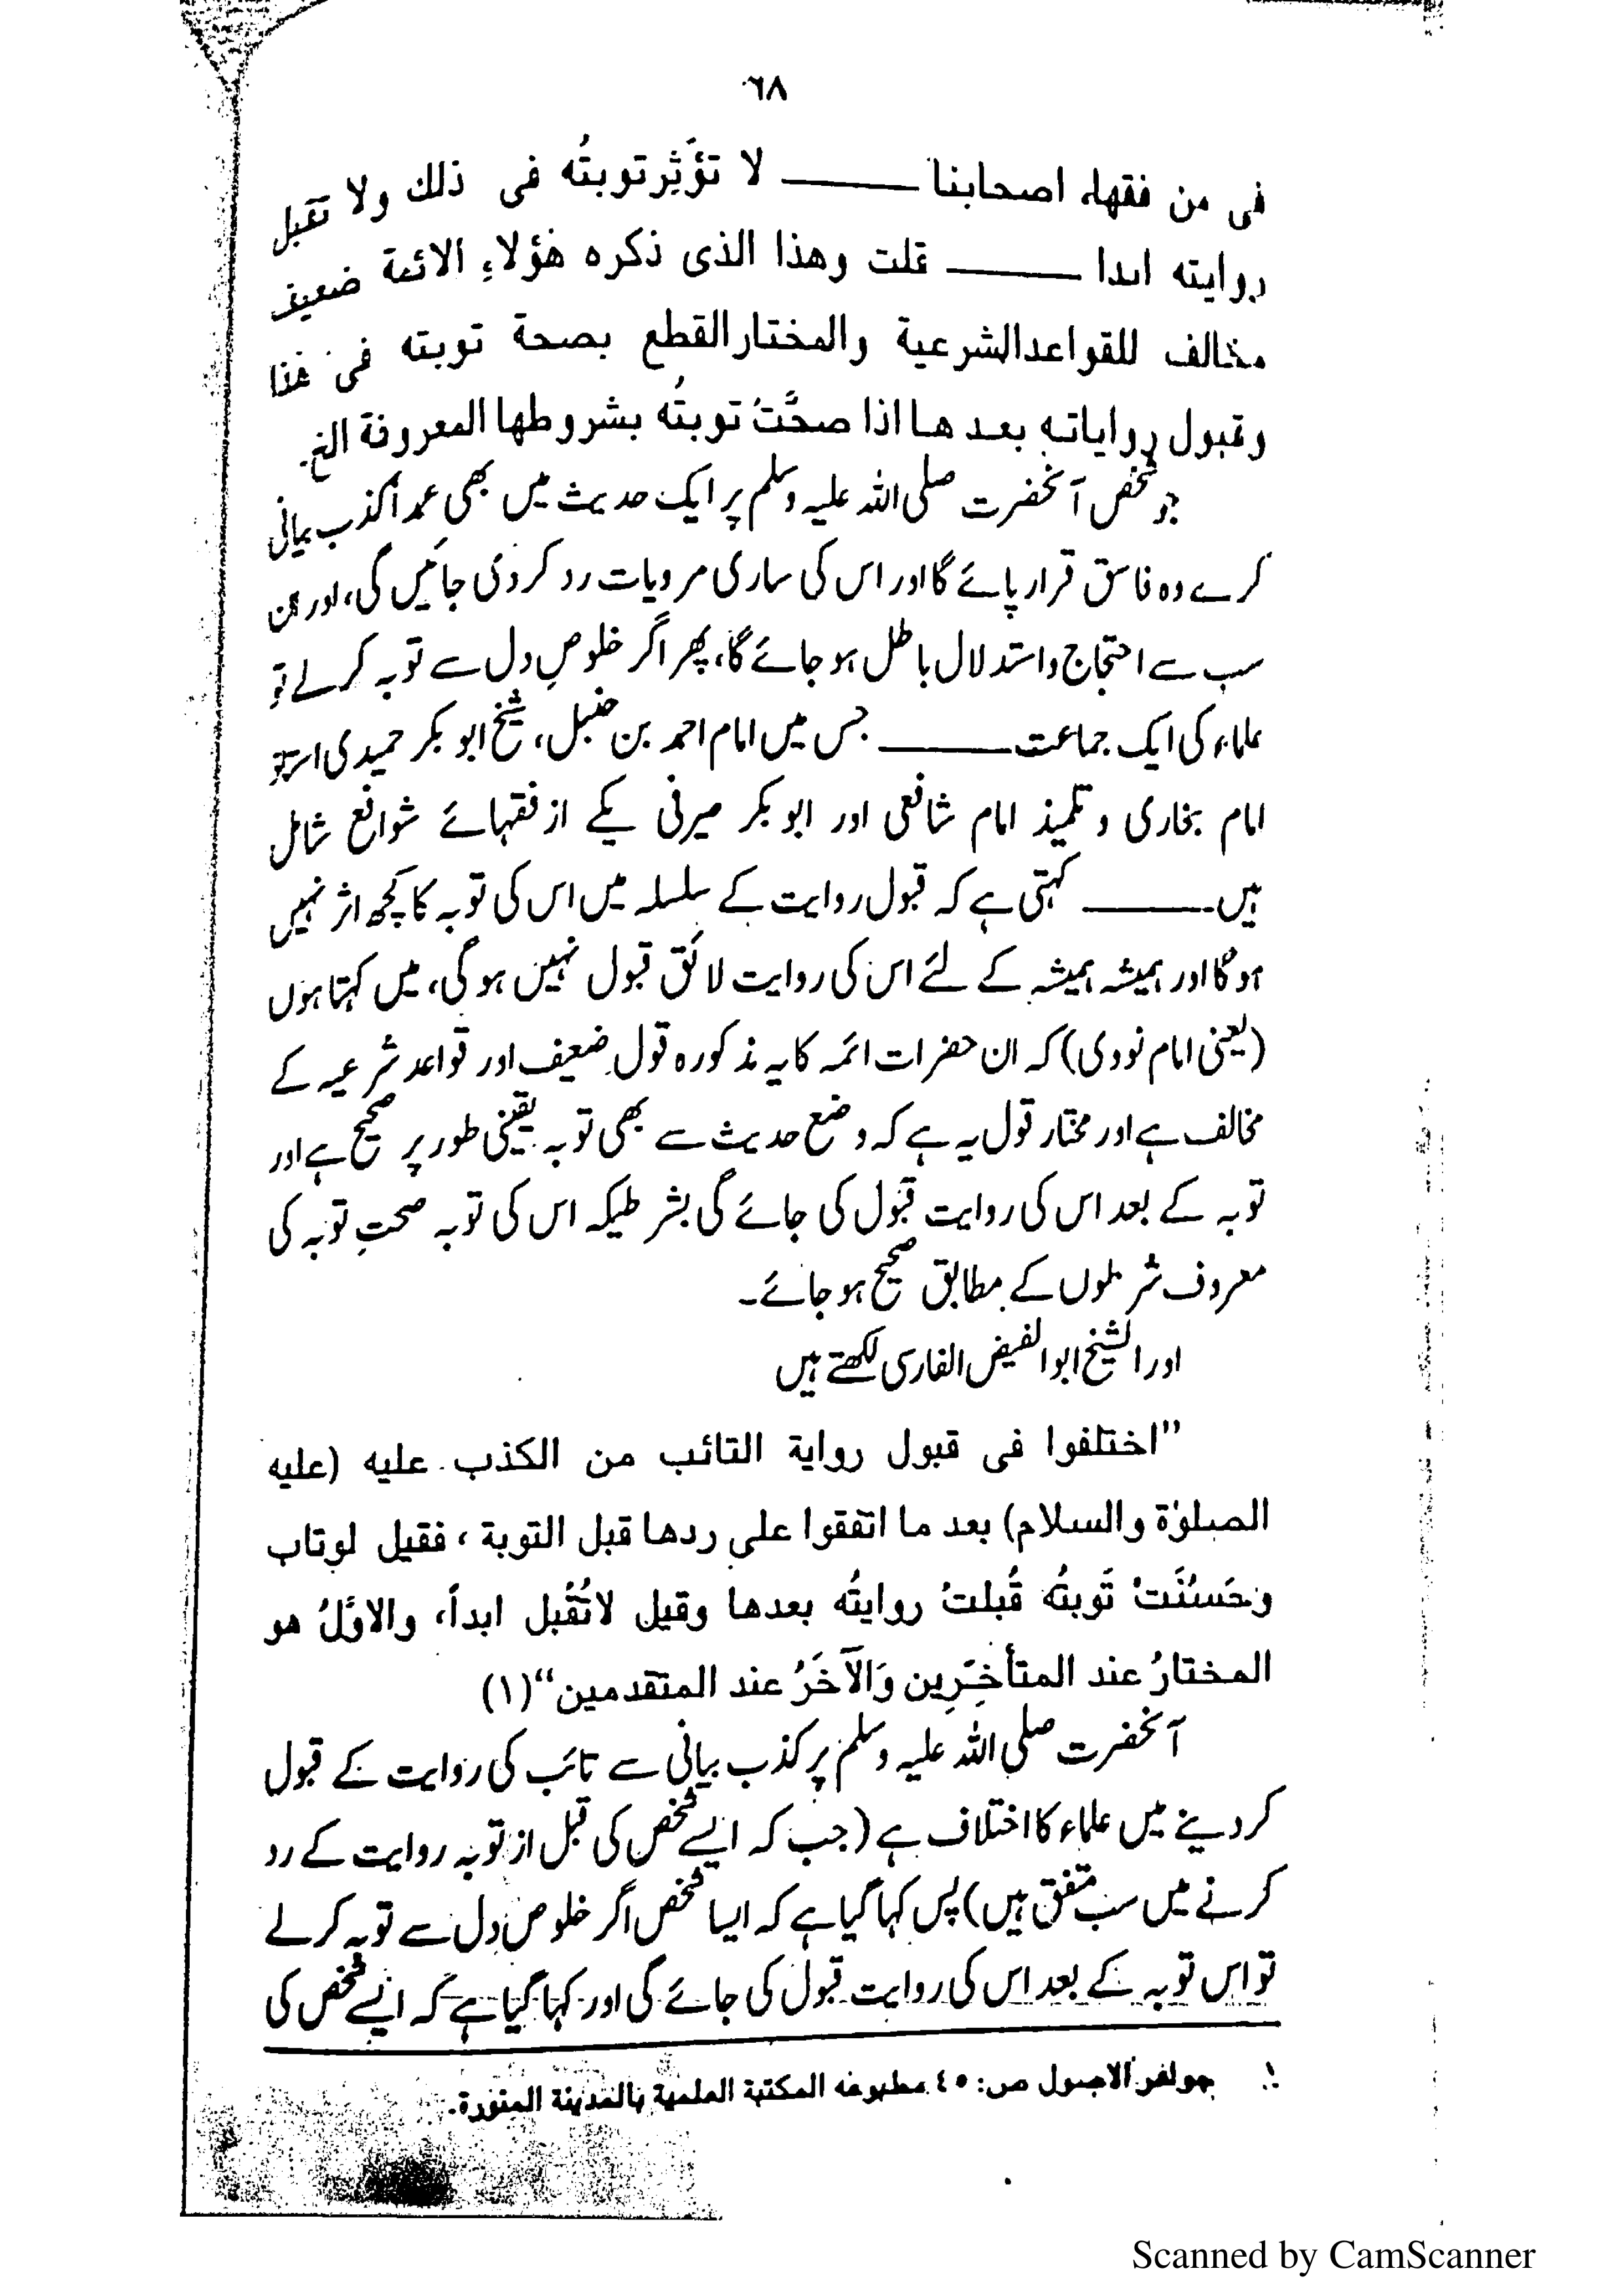 ٦٨
فی من فقهاء اصحابنا ——— لا تؤثِّر توبتُه فی ذلك ولا تقبل
روایته ابدا ——— قلت وهذا الذی ذکره هٰؤلاءِ الائمة ضعیف
مخالف للقواعد الشرعیة والمختار القطع بصحة توبته فی هٰذا
وقبول روایاته بعدها اذا صحَّتْ توبتُه بشروطها المعروفة الخ۔
جو شخص آنحضرت صلی اللہ علیہ وسلم پر ایک حدیث میں بھی عمداً کذب بیانی
کرے وہ فاسق قرار پائے گا اور اس کی ساری مرویات رد کردی جائیں گی، اور ان
سب سے احتجاج واستدلال باطل ہو جائے گا، پھر اگر خلوصِ دل سے توبہ کرلے تو
علماء کی ایک جماعت ——— جس میں امام احمد بن حنبل، شیخ ابو بکر حمیدی استاذ
امام بخاری و تلمیذ امام شافعی اور ابو بکر صیرفی یکے از فقہائے شوافع شامل
ہیں ——— کہتی ہے کہ قبول روایت کے سلسلہ میں اس کی توبہ کا کچھ اثر نہیں
ہوگا اور ہمیشہ ہمیشہ کے لئے اس کی روایت لائق قبول نہیں ہوگی، میں کہتا ہوں
(یعنی امام نووی) کہ ان حضرات ائمہ کا یہ مذکورہ قول ضعیف اور قواعد شرعیہ کے
مخالف ہے اور مختار قول یہ ہے کہ وضع حدیث سے بھی توبہ یقینی طور پر صحیح ہے اور
توبہ کے بعد اس کی روایت قبول کی جائے گی بشرطیکہ اس کی توبہ صحتِ توبہ کی
معروف شرطوں کے مطابق صحیح ہو جائے۔
اور الشیخ ابو الفیض الفارسی لکھتے ہیں
”اختلفوا فی قبول روایة التائب من الکذب علیه (علیه
الصلوٰة والسلام) بعد ما اتفقوا علی ردها قبل التوبة، فقیل لو تاب
وحَسُنَتْ تَوبتُه قُبلتْ روایتُه بعدها وقیل لاتُقْبل ابداً، والاوّلُ هو
المختارُ عند المتأخِّرِین وَالآخَرُ عند المتقدمین“(۱)
آنحضرت صلی اللہ علیہ وسلم پر کذب بیانی سے تائب کی روایت کے قبول
کر دینے میں علماء کا اختلاف ہے (جب کہ ایسے شخص کی قبل از توبہ روایت کے رد
کرنے میں سب متفق ہیں) پس کہا گیا ہے کہ ایسا شخص اگر خلوص دل سے توبہ کرلے
تو اس توبہ کے بعد اس کی روایت قبول کی جائے گی اور کہا گیا ہے کہ ایسے شخص کی
۱۔ جواهر الاصول ص: ٤٥ مطبوعه المکتبة العلمیة بالمدینة المنورة۔
Scanned by CamScanner